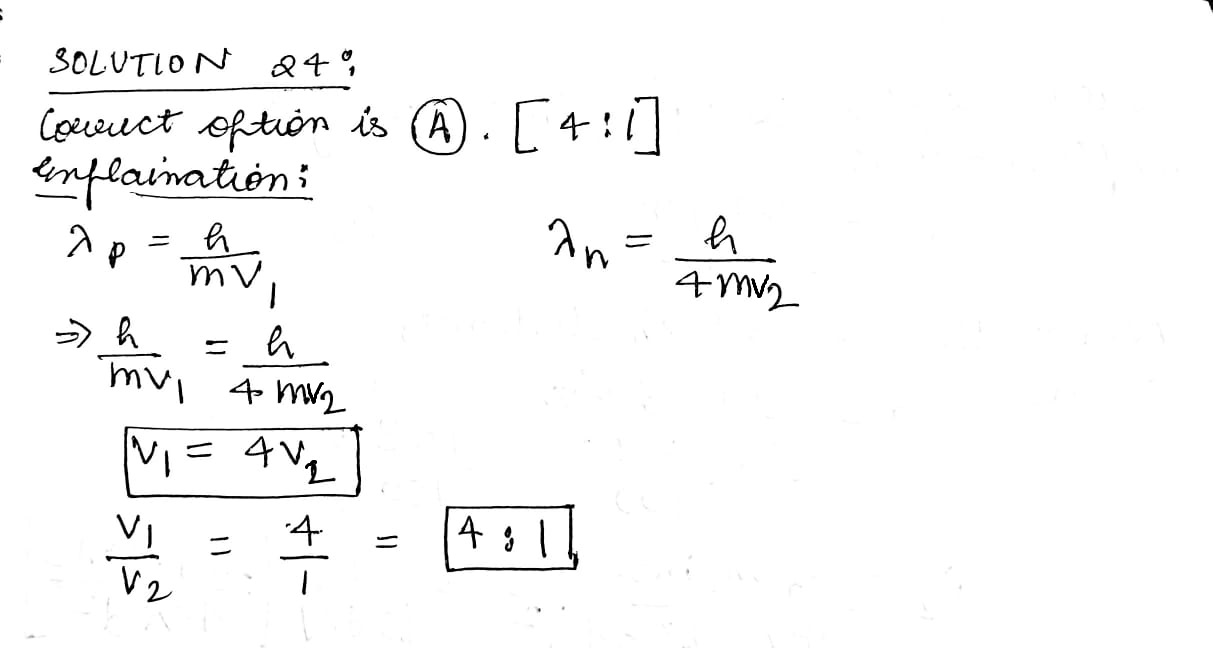 SOLUTION 24:
Correct option is (A). [4:1]
Explaination:
λp = h/mv₁    λn = h/4mv₂
⇒ h/mv₁ = h/4mv₂
v₁ = 4v₂
v₁/v₂ = 4/1 = 4:1